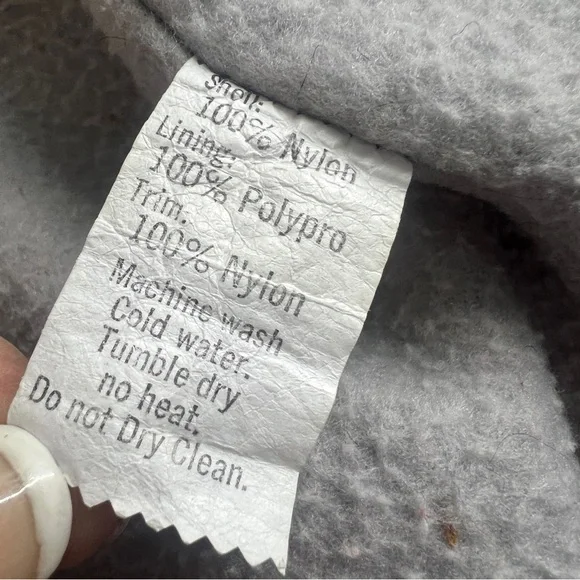 Shell:
100% Nylon
Lining:
100% Polypro
Trim.
100% Nylon
Machine wash
Cold water.
Tumble dry
no heat.
Do not Dry Clean.